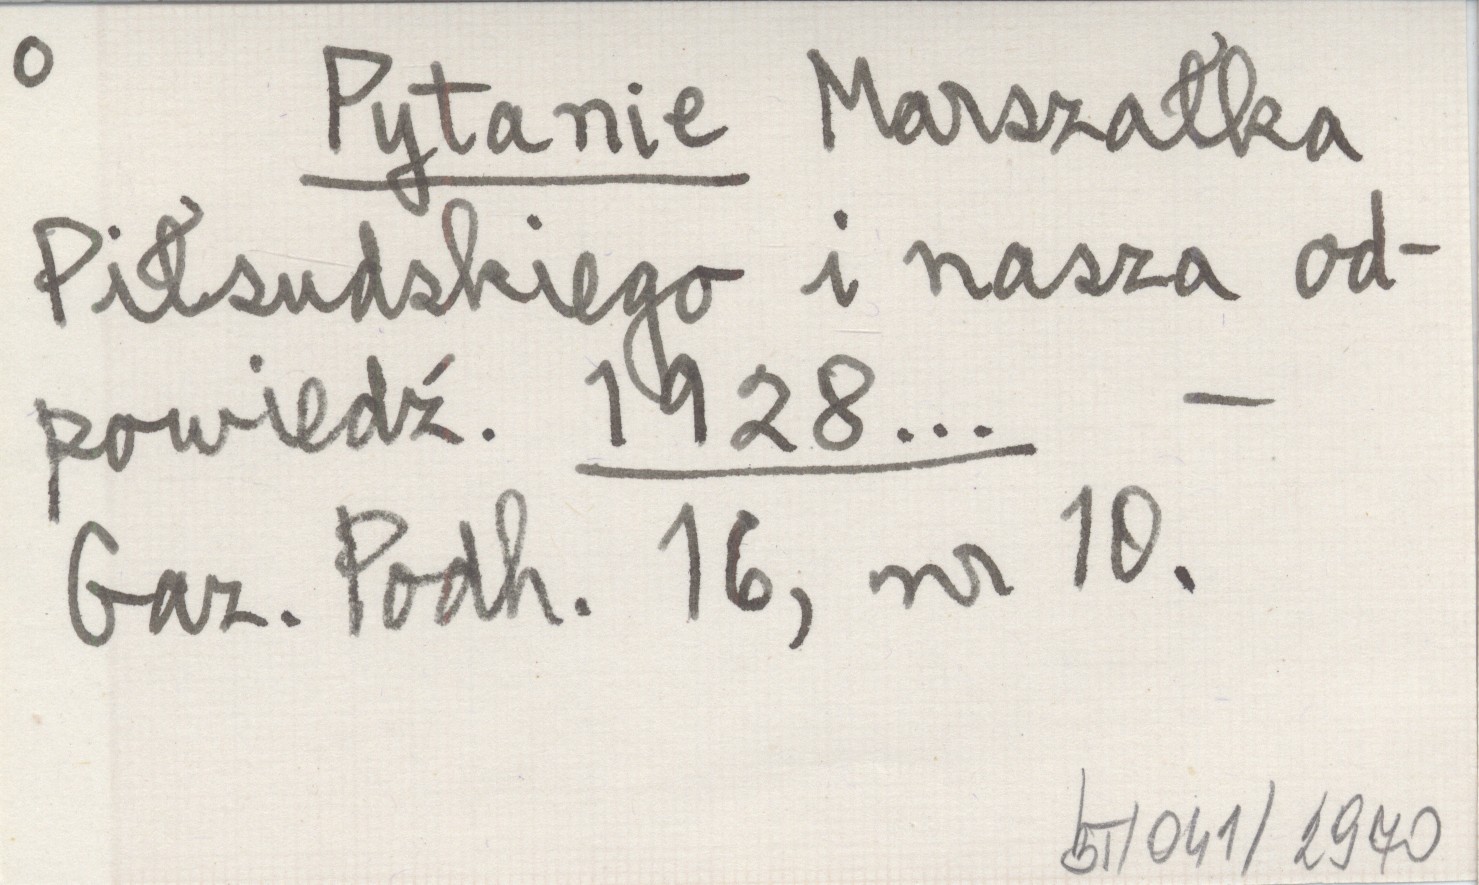 o Pytanie Marszałka
Piłsudskiego i nasza od-
powiedź. 1928... —
Gaz. Podh. 16, nr 10.
/041/ 2970